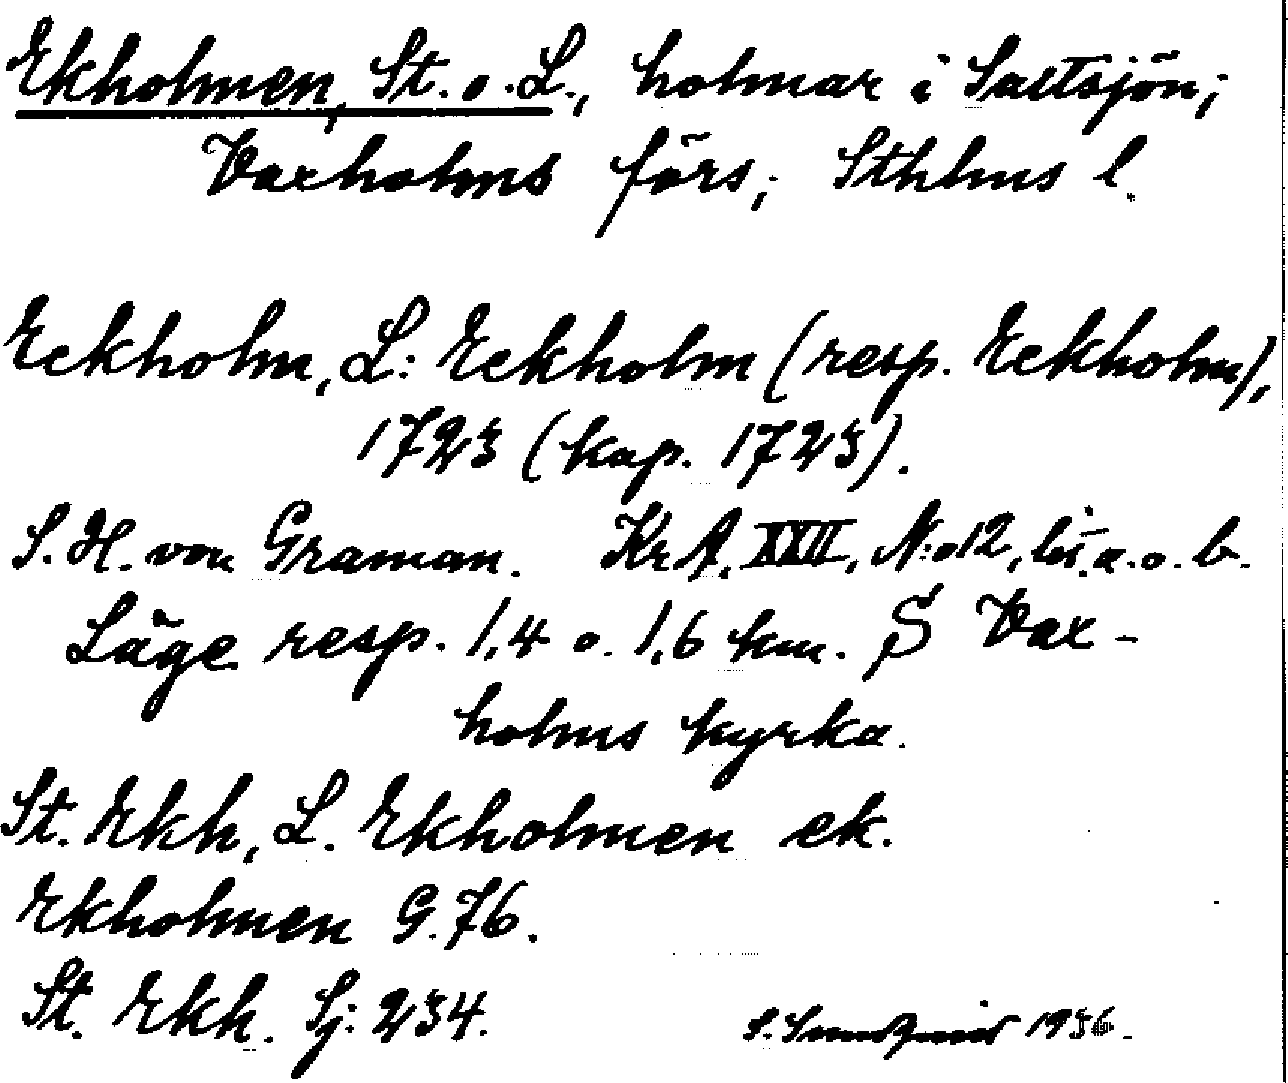 Ekholmen, St. o. L., holmar i Saltsjön;
Vaxholms förs; Sthlms l.
Eckholm, L: Eckholm (resp. Eckholm),
1723 (kap. 1723).
S. H. von Graman. KrA. XXII, N:o 12, lit. a. o. b.
Läge resp. 1,4 o. 1,6 km. S Vax-
holms kyrka.
St. Ekh, L. Ekholmen ek.
Ekholmen G. 76.
St. Ekh. Sj: 234.